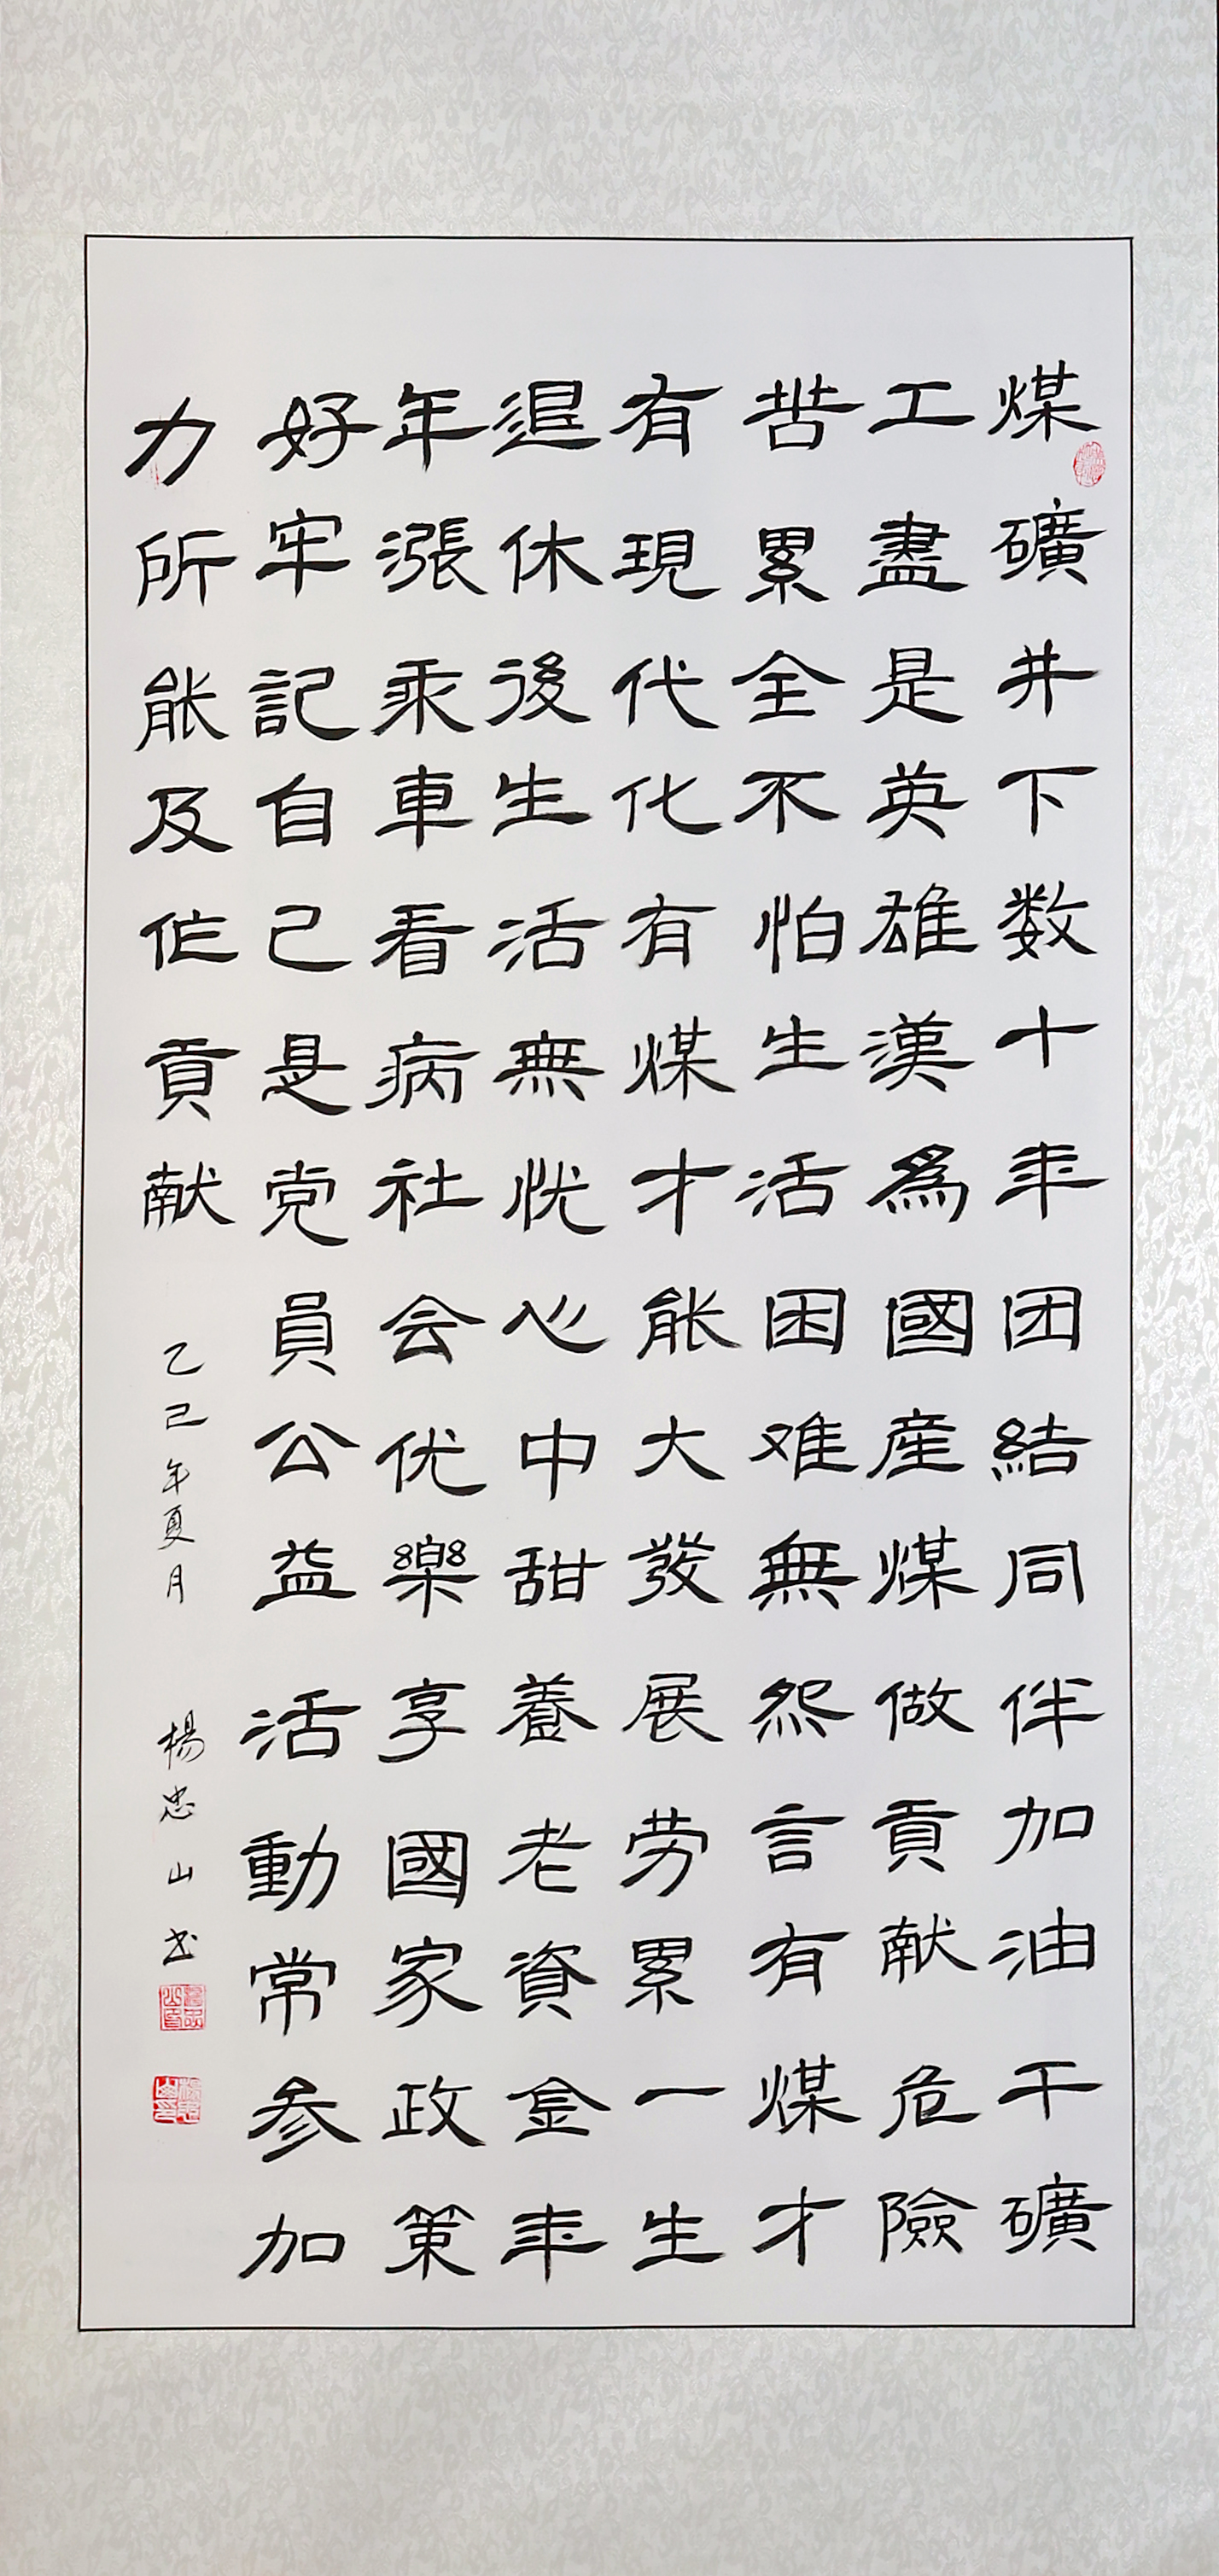 煤礦井下数十年团結同伴加油干礦
工盡是英雄漢為國産煤做貢献危險
苦累全不怕生活困难無怨言有煤才
有現代化有煤才能大發展劳累一生
退休後生活無忧心中甜養老資金年
年漲乘車看病社会优樂享國家政策
好牢記自己是党員公益活動常参加
力所能及作貢献
乙巳年夏月 楊忠山书